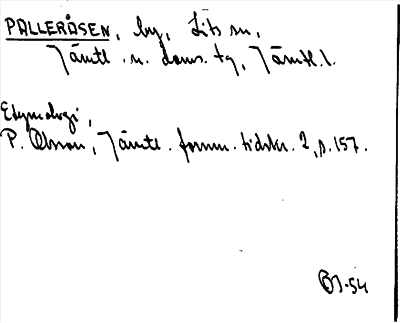 PALLERÅSEN, by, Lits sn,
Jämtl. n. doms. tg, Jämtl. l.
Etymologi,
P. Olsson, Jämtl. fornm. tidskr. 2, s. 157.
-54